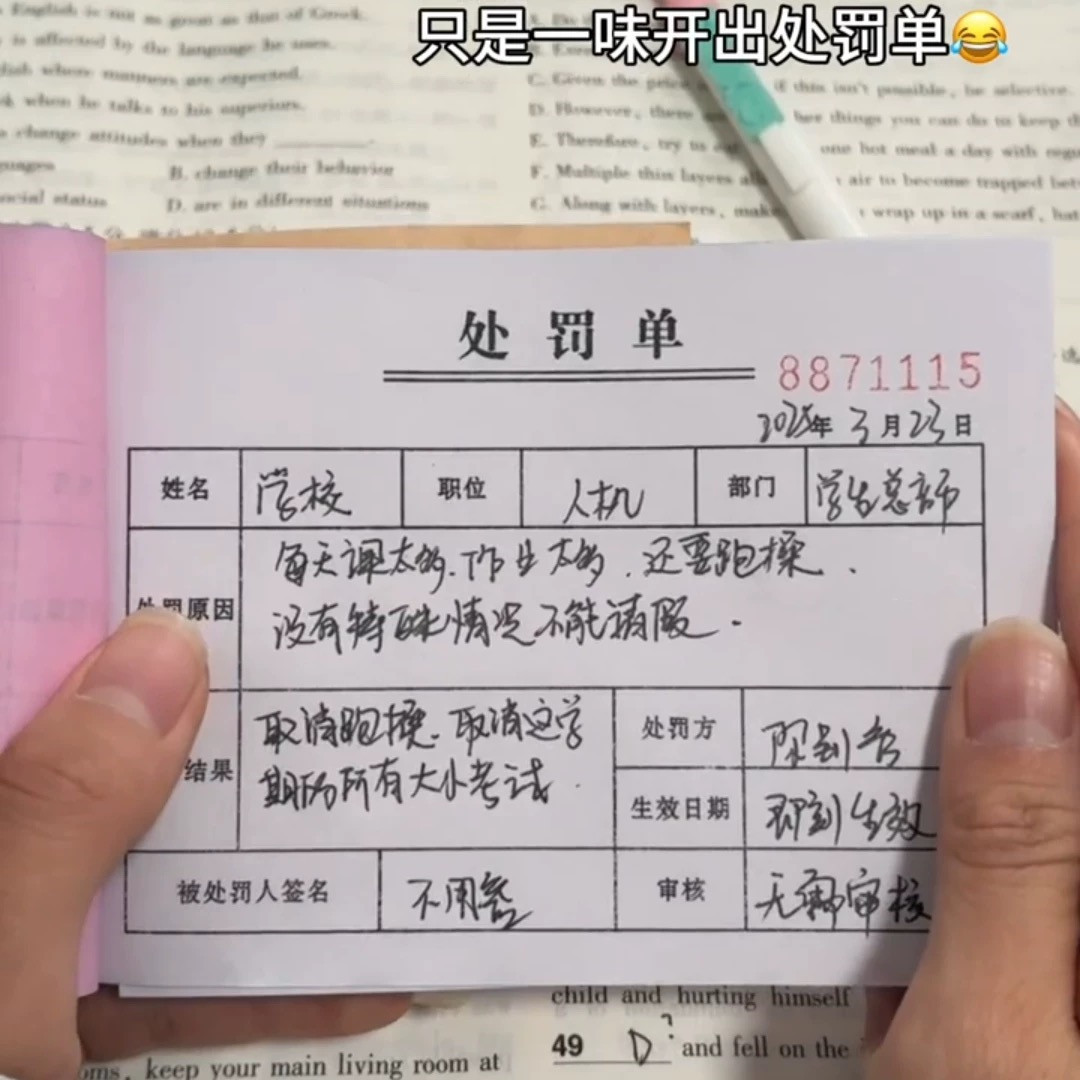 只是一味开出处罚单😂
English is not as great as that of Greek.
is affected by the language he uses.
lish where manners are expected.
when he talks to his superiors.
change attitudes when they
B. change their behavior
ocial status
D. are in different situations
C. Given the price
if this isn't possible, be selective.
D. However, there
her things you can do to keep th
E. Therefore, try to
one hot meal a day with
F. Multiple thin layers
air to become trapped
G. Along with layers,
wrap up in a scarf, hat
处罚单
8871115
2025年3月23日
姓名 学校 职位 人机 部门 学生总部
处罚原因
每天课太多、作业太多、还要跑操、
没有特殊情况不能请假.
结果
取消跑操、取消这学
期的所有大小考试.
处罚方
生效日期 即刻生效
被处罚人签名 不用签 审核 无需审核
child and hurting himself
49 D ? and fell on the
oms, keep your main living room at